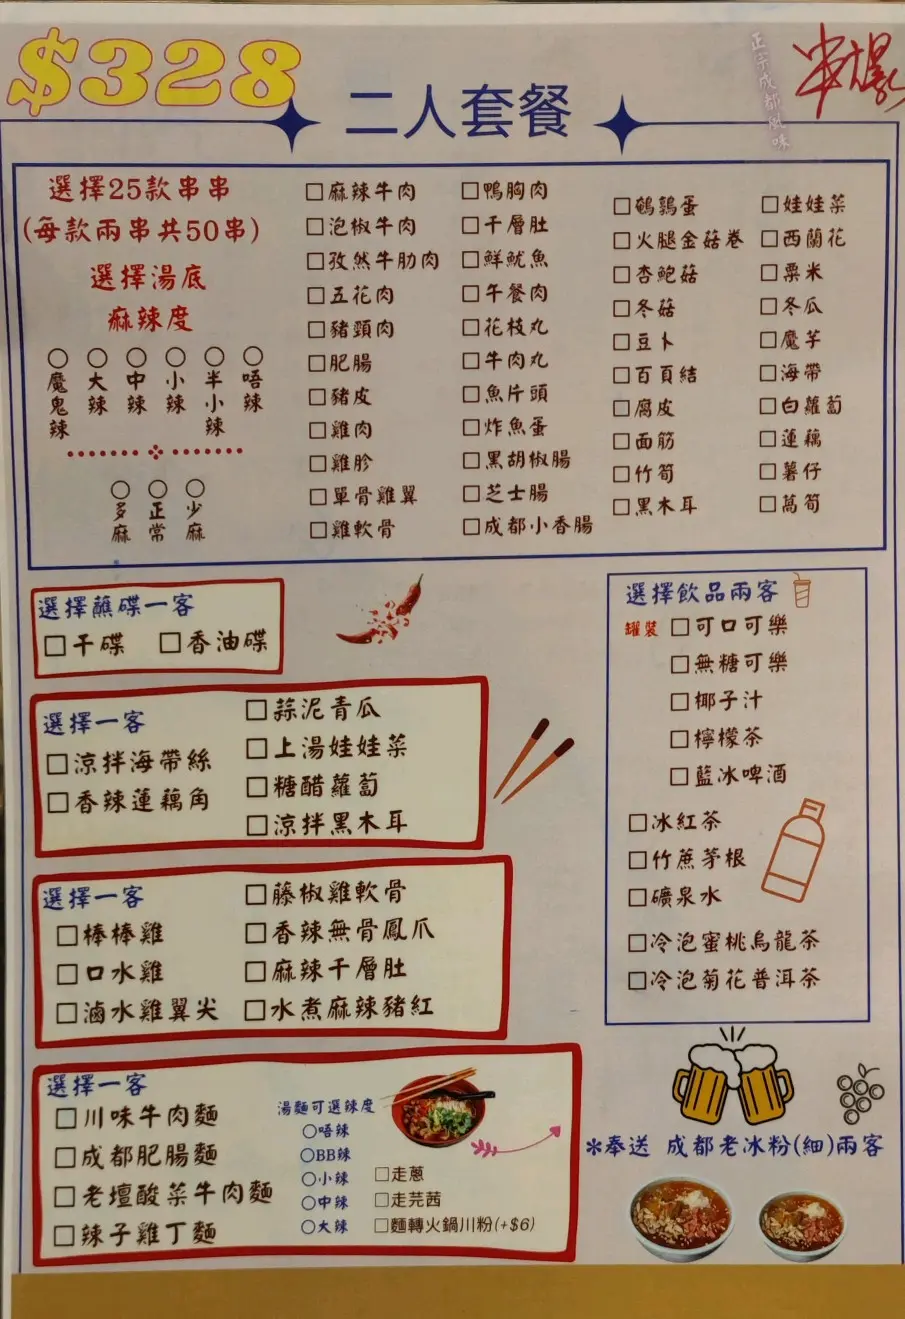 $328
二人套餐
正宁成都風味
選擇25款串串
(每款兩串共50串)
選擇湯底
麻辣度
○魔鬼辣
○大辣
○中辣
○小辣
○半小辣
○唔辣
○多麻
○正常
○少麻
□麻辣牛肉
□泡椒牛肉
□孜然牛肋肉
□五花肉
□豬頸肉
□肥腸
□豬皮
□雞肉
□雞胗
□單骨雞翼
□雞軟骨
□鴨胸肉
□千層肚
□鮮魷魚
□午餐肉
□花枝丸
□牛肉丸
□魚片頭
□炸魚蛋
□黑胡椒腸
□芝士腸
□成都小香腸
□鵪鶉蛋
□火腿金菇卷
□杏鮑菇
□冬菇
□豆卜
□百頁結
□腐皮
□面筋
□竹筍
□黑木耳
□娃娃菜
□西蘭花
□粟米
□冬瓜
□魔芋
□海帶
□白蘿蔔
□蓮藕
□薯仔
□萵筍
選擇蘸碟一客
□干碟 □香油碟
選擇一客
□涼拌海帶絲
□香辣蓮藕角
□蒜泥青瓜
□上湯娃娃菜
□糖醋蘿蔔
□涼拌黑木耳
選擇一客
□棒棒雞
□口水雞
□滷水雞翼尖
□藤椒雞軟骨
□香辣無骨鳳爪
□麻辣千層肚
□水煮麻辣豬紅
選擇一客
□川味牛肉麵
□成都肥腸麵
□老壇酸菜牛肉麵
□辣子雞丁麵
湯麵可選辣度
○唔辣
○BB辣
○小辣
○中辣
○大辣
□走蔥
□走芫茜
□麵轉火鍋川粉(+$6)
選擇飲品兩客
罐裝 □可口可樂
□無糖可樂
□椰子汁
□檸檬茶
□藍冰啤酒
□冰紅茶
□竹蔗茅根
□礦泉水
□冷泡蜜桃烏龍茶
□冷泡菊花普洱茶
*奉送 成都老冰粉(細)兩客